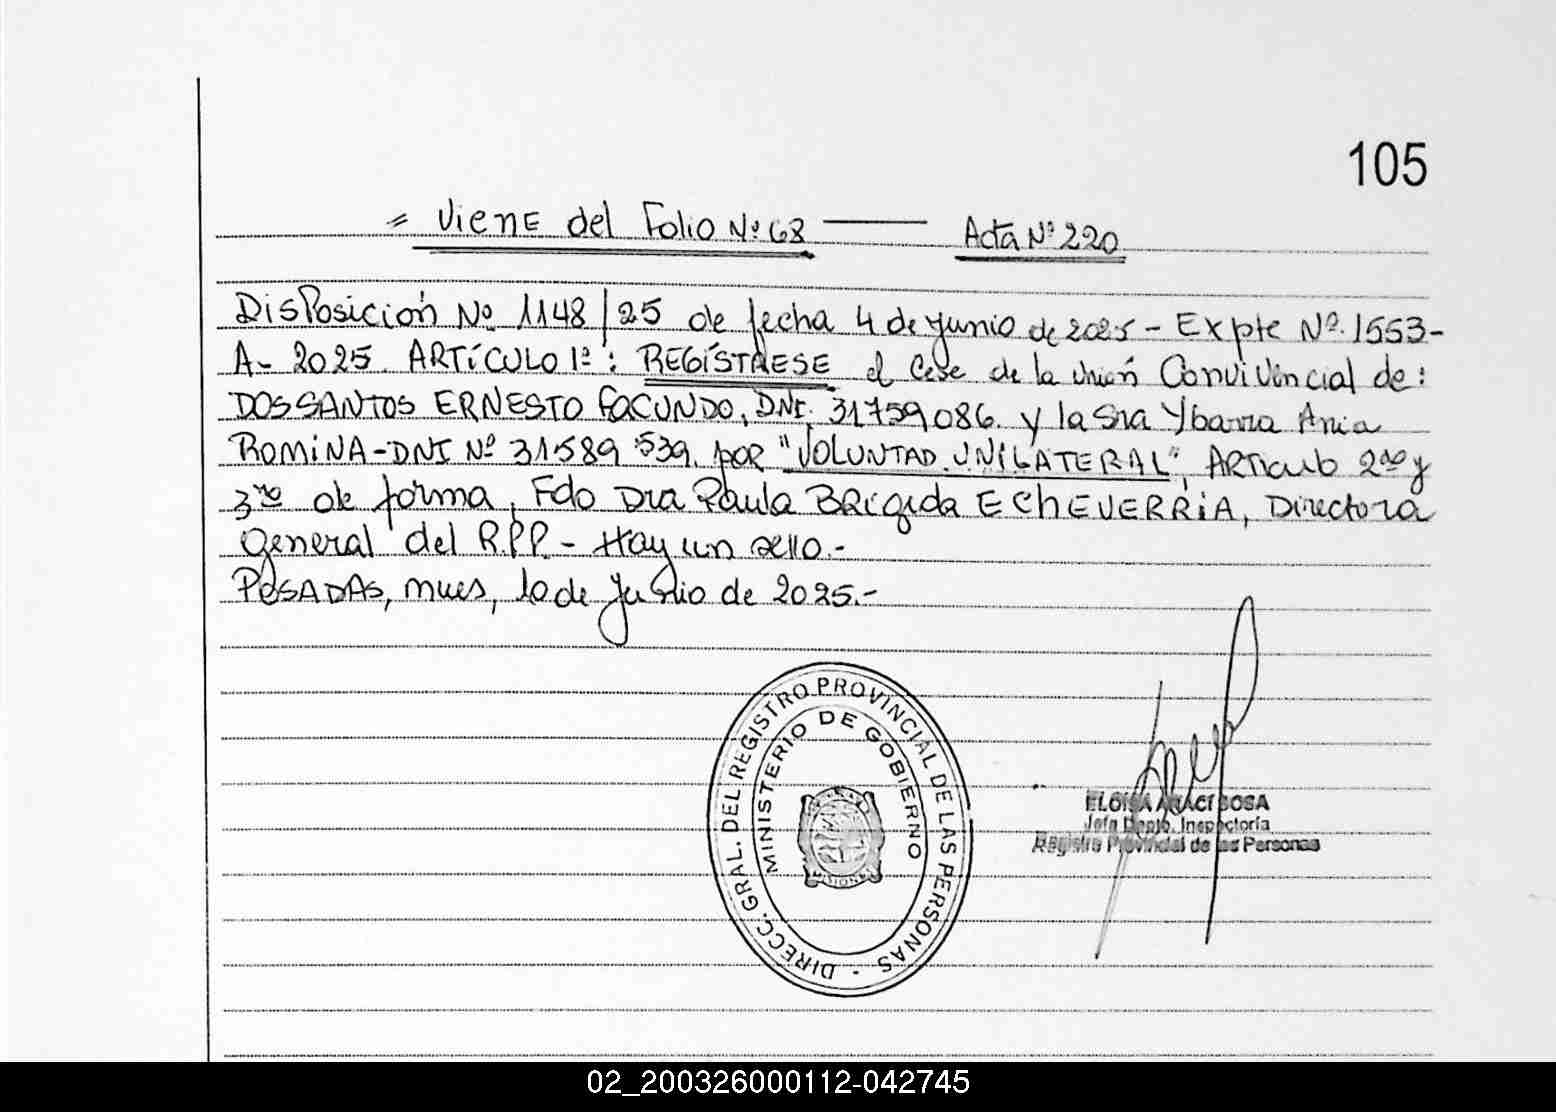 105
= Viene del Folio Nº 68 —— Acta Nº 220
Disposición Nº 1148/25 de fecha 4 de junio de 2025 - Expte Nº. 1553-
A- 2025. ARTÍCULO 1º: REGÍSTRESE el Cese de la unión Convivencial de:
DOS SANTOS ERNESTO FACUNDO, DNI. 31759086. y la Sra Ybarra Ania
ROMINA-DNI Nº 31589539. por "VOLUNTAD UNILATERAL", Articulo 2do y
3ro de forma, Fdo Dra Paula Brígida ECHEVERRIA, Directora
General del R.P.P. - Hay un sello.-
POSADAS, Mnes, 10 de Junio de 2025.-
DIRECC. GRAL. DEL REGISTRO PROVINCIAL DE LAS PERSONAS -
MINISTERIO DE GOBIERNO
MISIONES
ELOISA ARACI SOSA
Jefa Depto. Inspectoría
Registro Provincial de las Personas
02_200326000112-042745